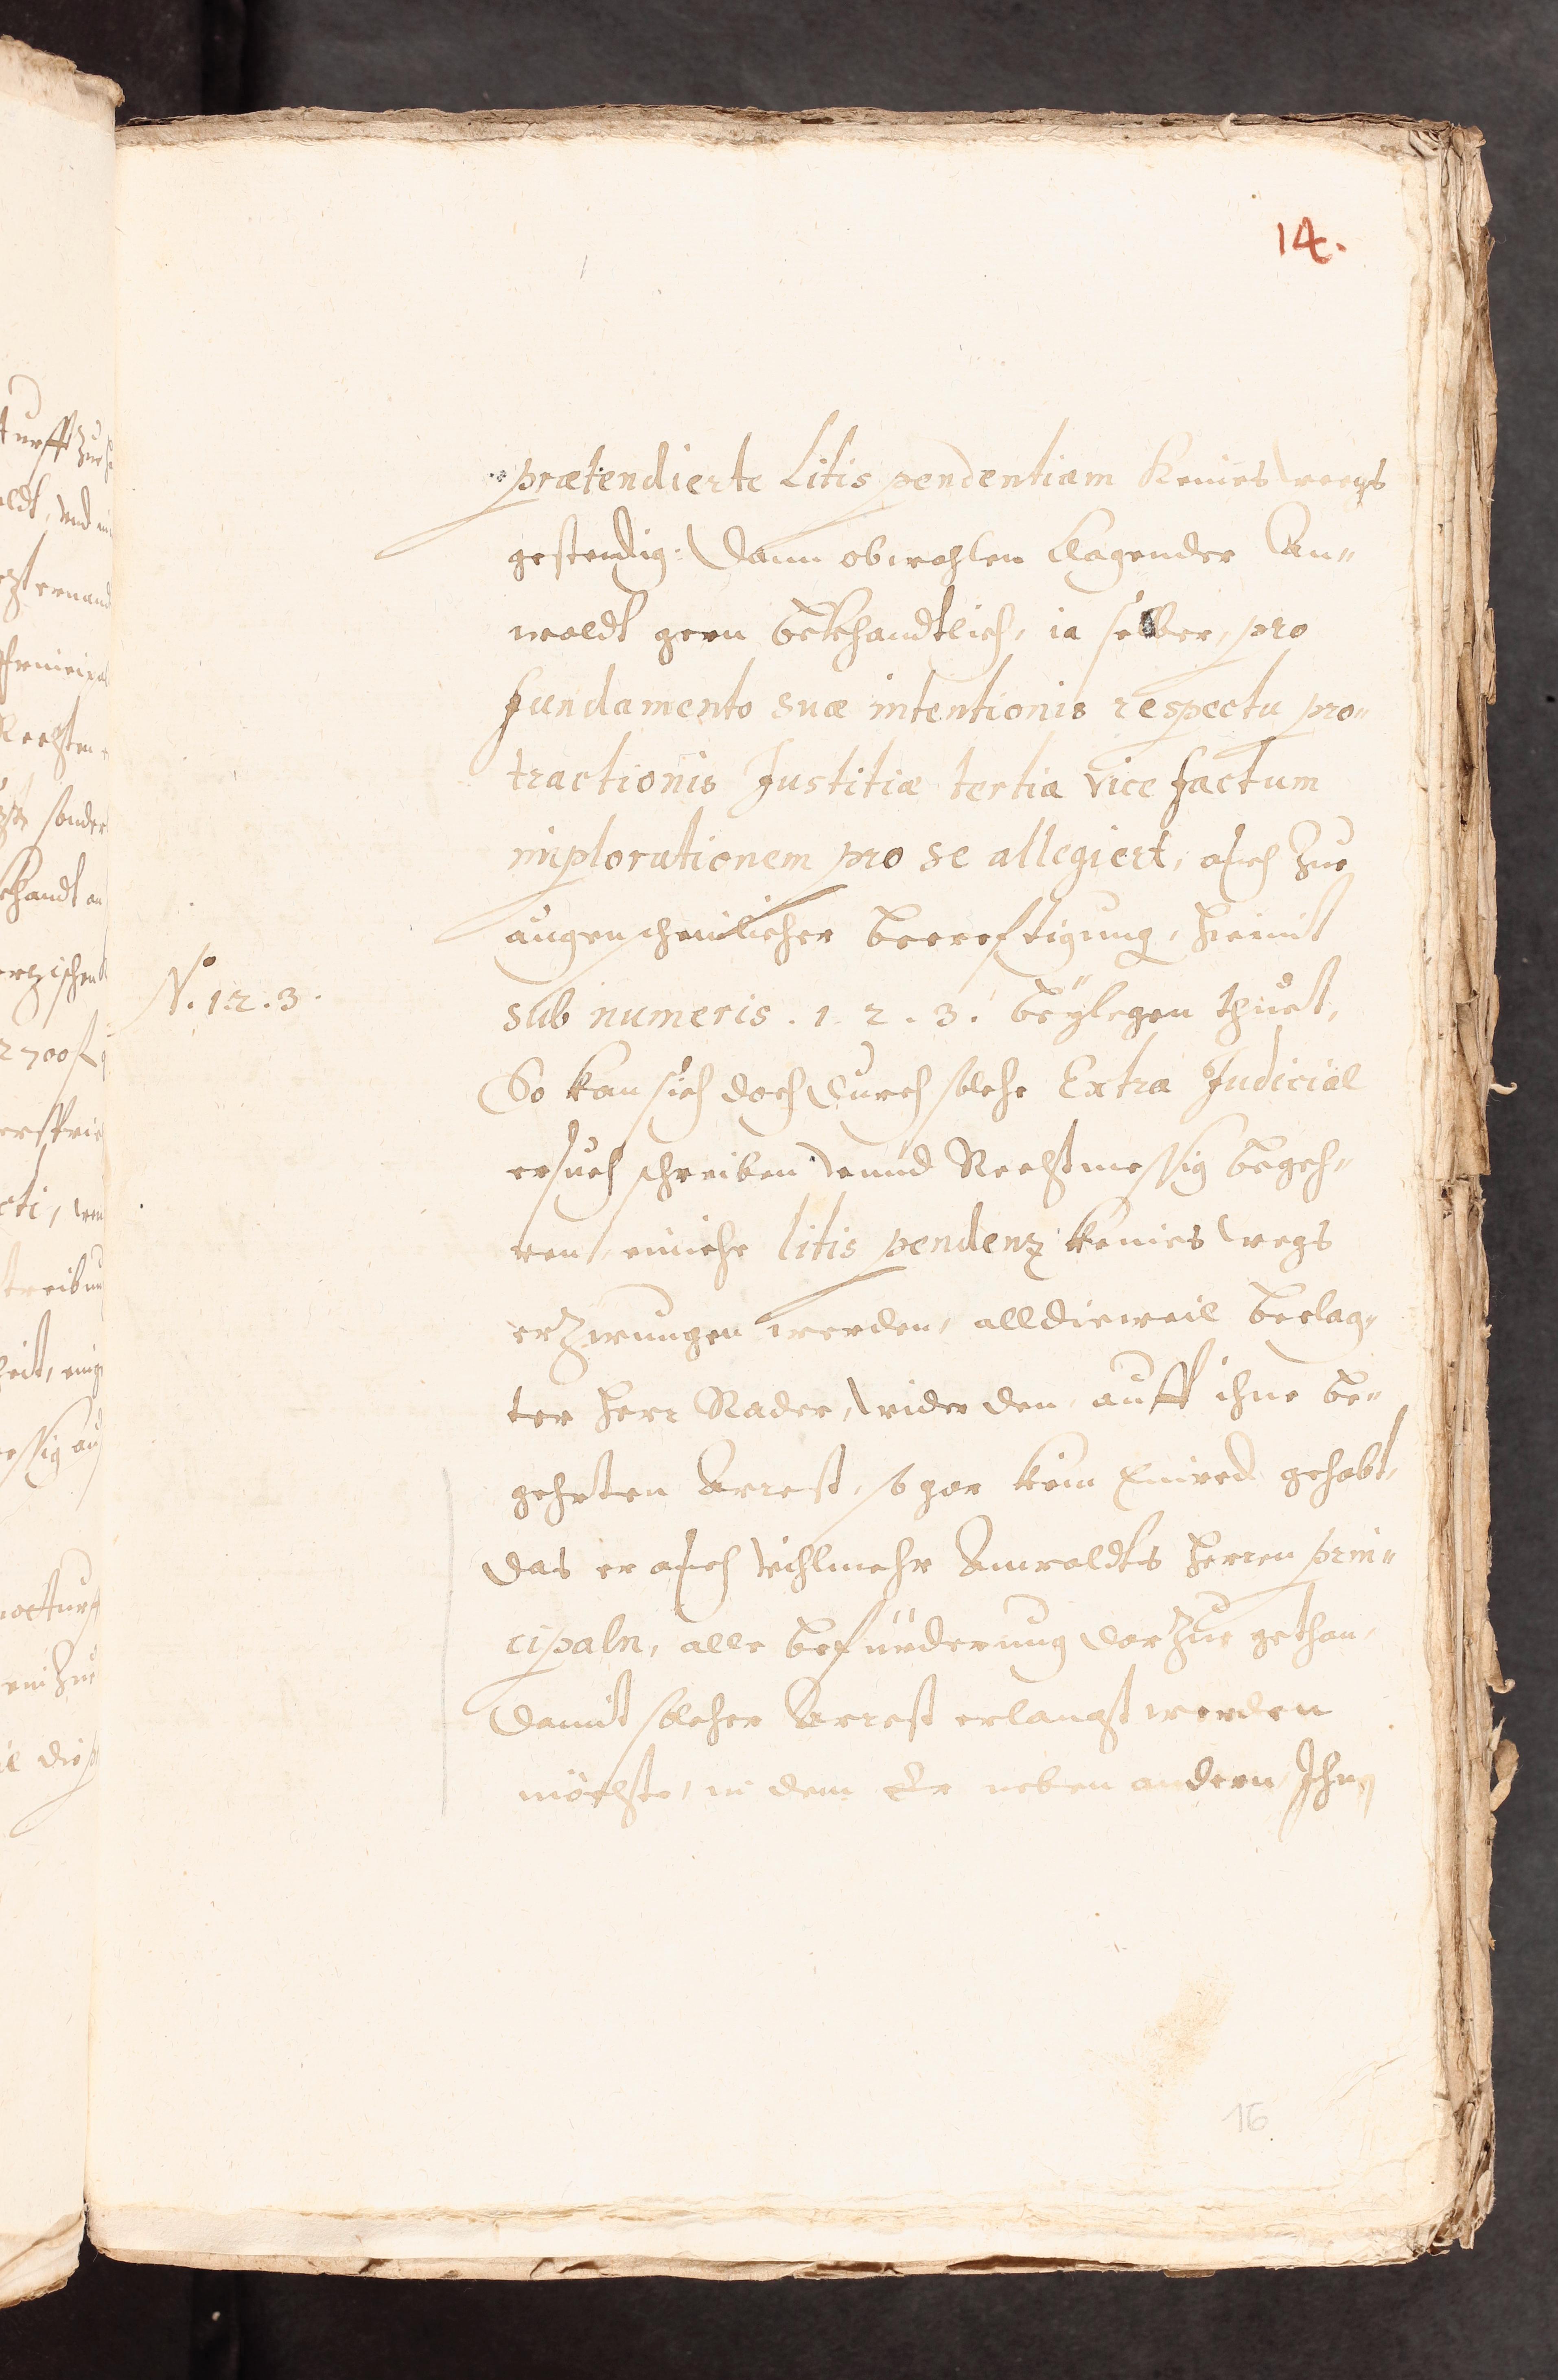 14.
prætendierte Litis pendentiam Keines weegs
gestendig: Dann obwohlen Clagender An-
waldt gern bekhandtlich, ia selber, pro
fundamento suæ intentionis respectu pro-
tractionis Justitiæ tertia vice factum
implorationem pro se allegiert, auch Zue
augenscheinlicher becreftigung, hiemit
N.o 1. 2. 3.
sub numeris. 1. 2. 3. beylegen thuet,
So kan sich doch durch solche Extra Judicial
ersuch schreiben vnnd Rechtmessig begeh-
ren, einiche litis pendenz keines wegs
erzwungen werden, alldieweil beclag-
ter Herr Rader, wider den, auff ihne be-
gehrten Arrest, so gar kein Einred gehabt,
das er auch vihlmehr Anwaldts Herren prin-
cipaln, alle befürderung darzue gethan,
damit solcher Arrest erlangt werden
möchte, in dem Er neben andern, Ihne
16